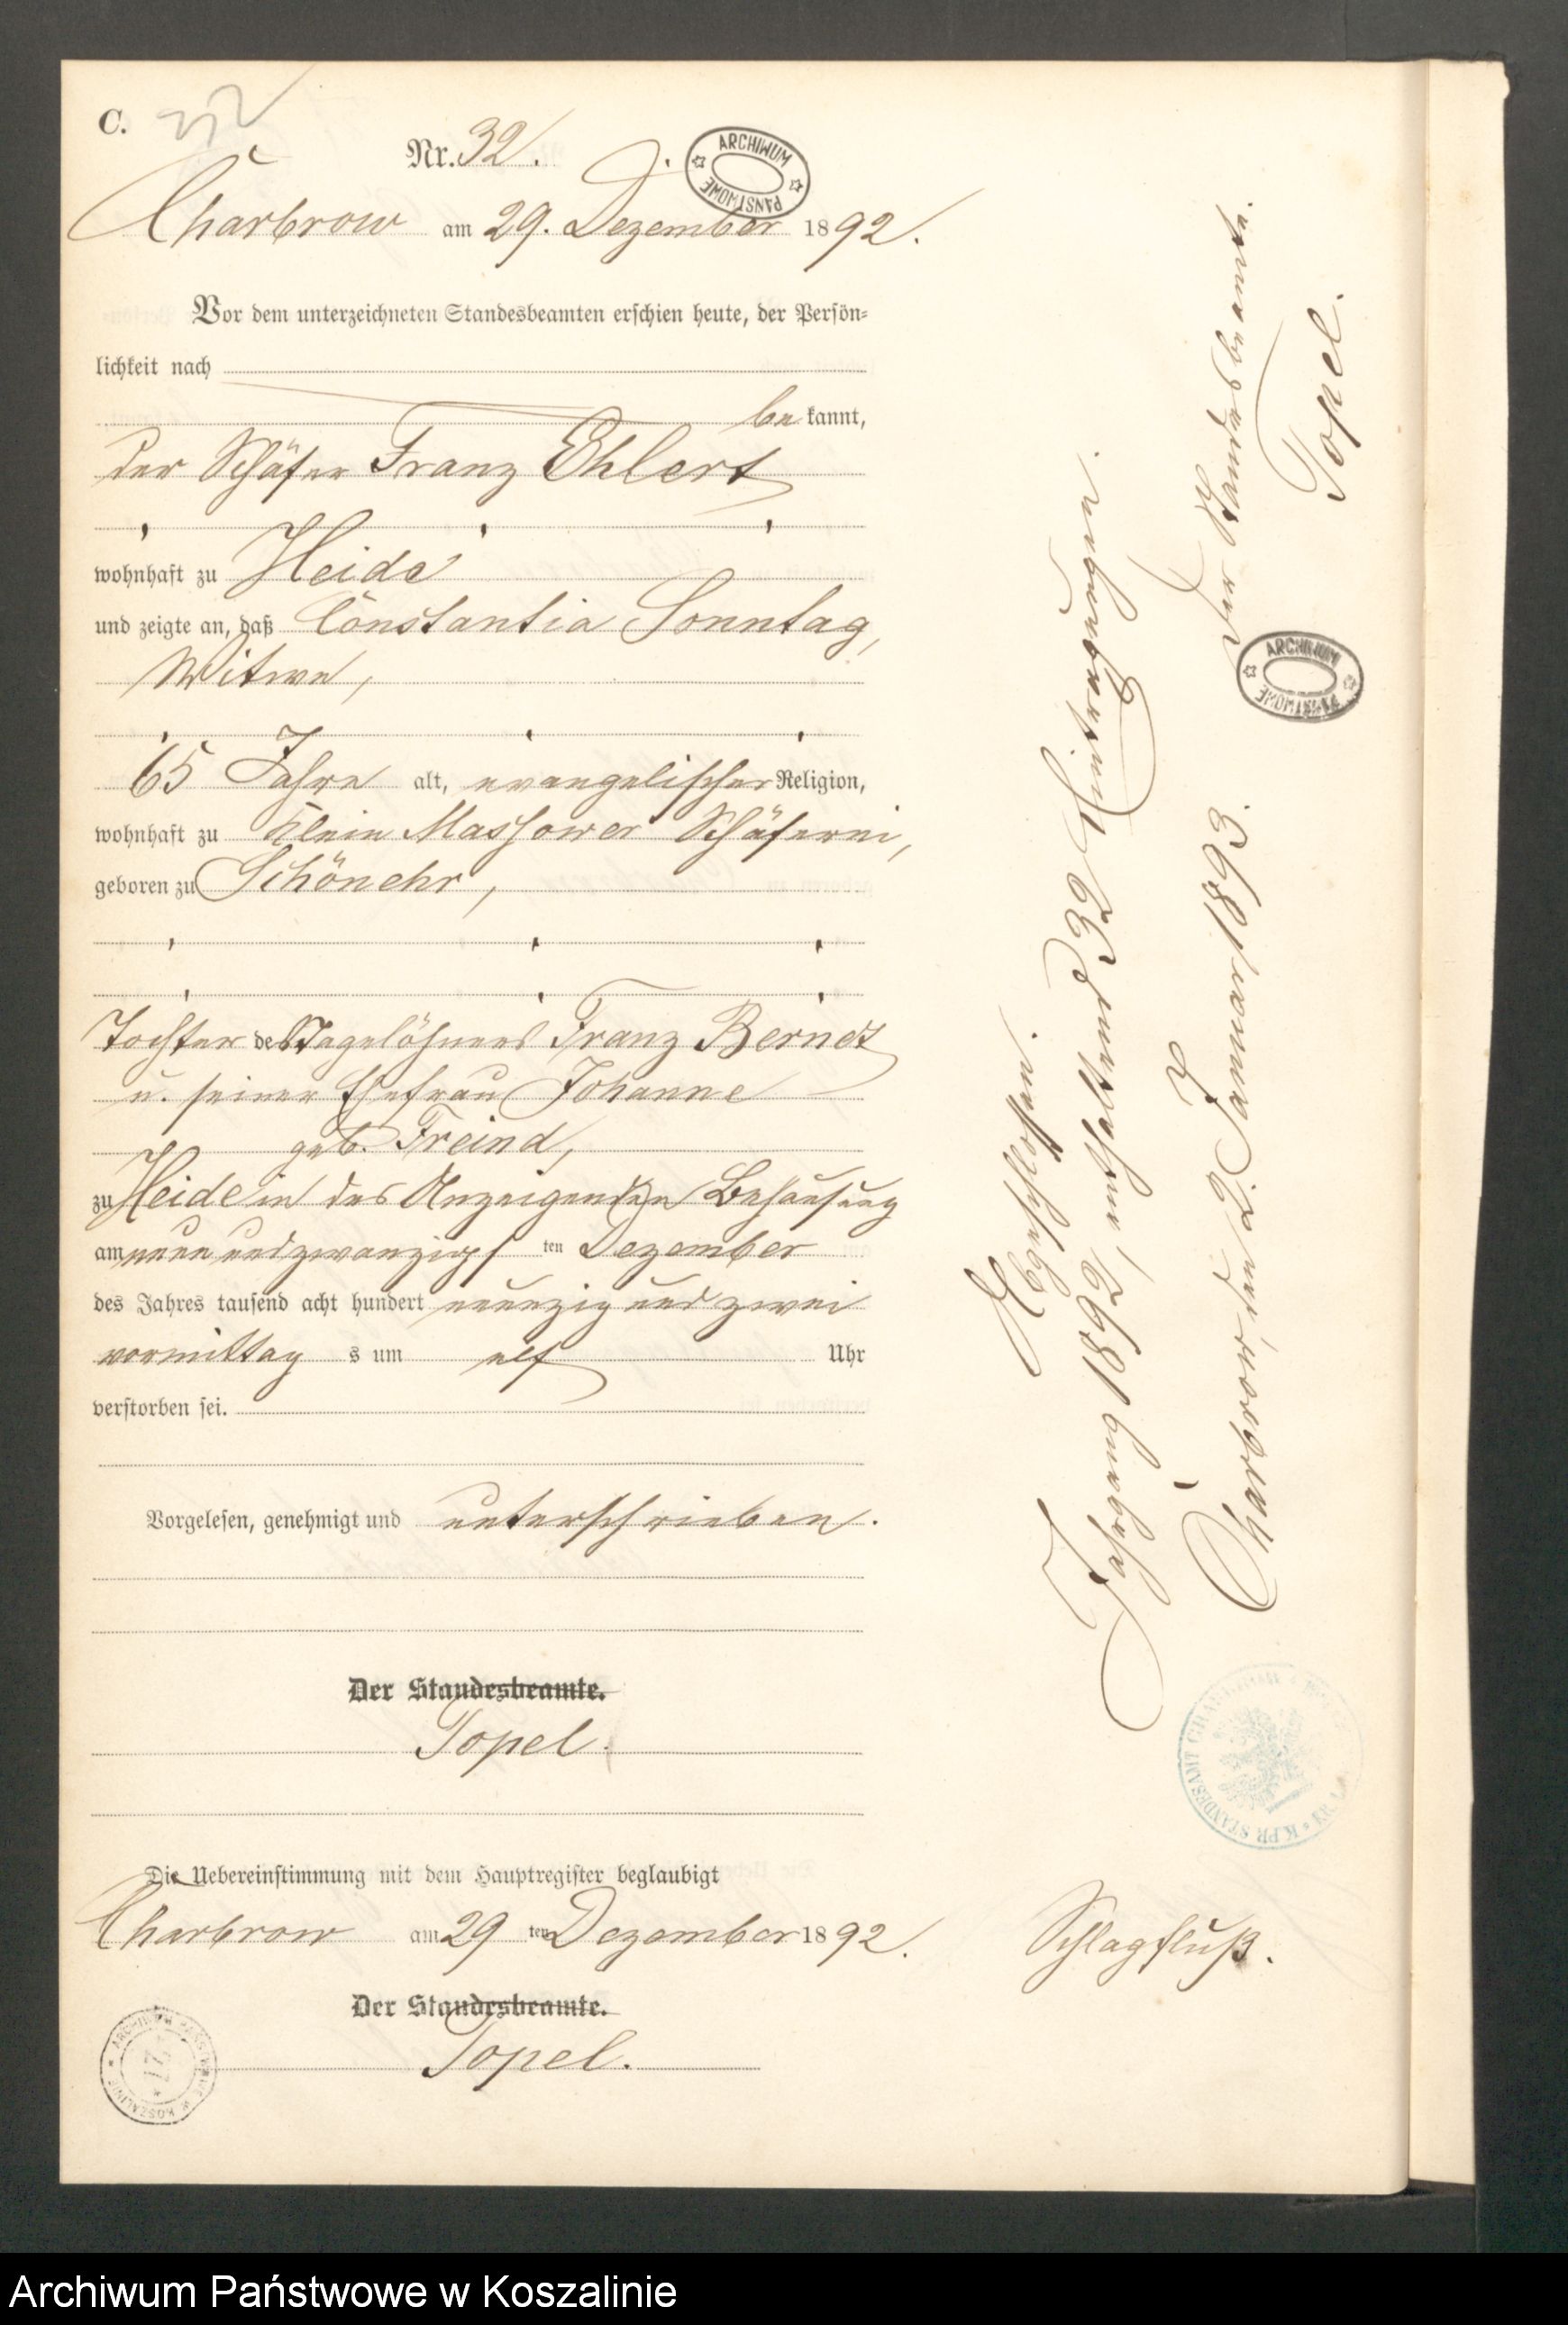 C. 32
Nr. 32.
ARCHIWUM PAŃSTWOWE
Charbrow am 29. Dezember 1892.
Vor dem unterzeichneten Standesbeamten erschien heute, der Persön-
lichkeit nach
bekannt,
der Schäfer Franz Ehlert
wohnhaft zu Heide
und zeigte an, daß Constantia Sonntag,
Witwe,
65 Jahre alt, evangelischer Religion,
wohnhaft zu Klein Massower Schäferei,
geboren zu Schönehr,
Tochter des Tagelöhners Franz Berndt
u. seiner Ehefrau Johanne
geb. Freind,
zu Heide in des Anzeigenden Behausung
am neun und zwanzigsten Dezember
des Jahres tausend acht hundert neunzig und zwei
vormittags um elf Uhr
verstorben sei.
Vorgelesen, genehmigt und unterschrieben.
Der Standesbeamte.
Topel.
Die Uebereinstimmung mit dem Hauptregister beglaubigt
Charbrow am 29 ten Dezember 1892.
Der Standesbeamte.
Topel.
ARCHIWUM KOSZALIN
Abgeschlossen.
Jahrgang 1892, enthaltend 32 Eintragungen.
Charbrow, den 2. Januar 1893.
Der Standesbeamte.
Topel.
ARCHIWUM PAŃSTWOWE
K. PR. STANDESAMT CHARBROW
Schlagfluß.
Archiwum Państwowe w Koszalinie